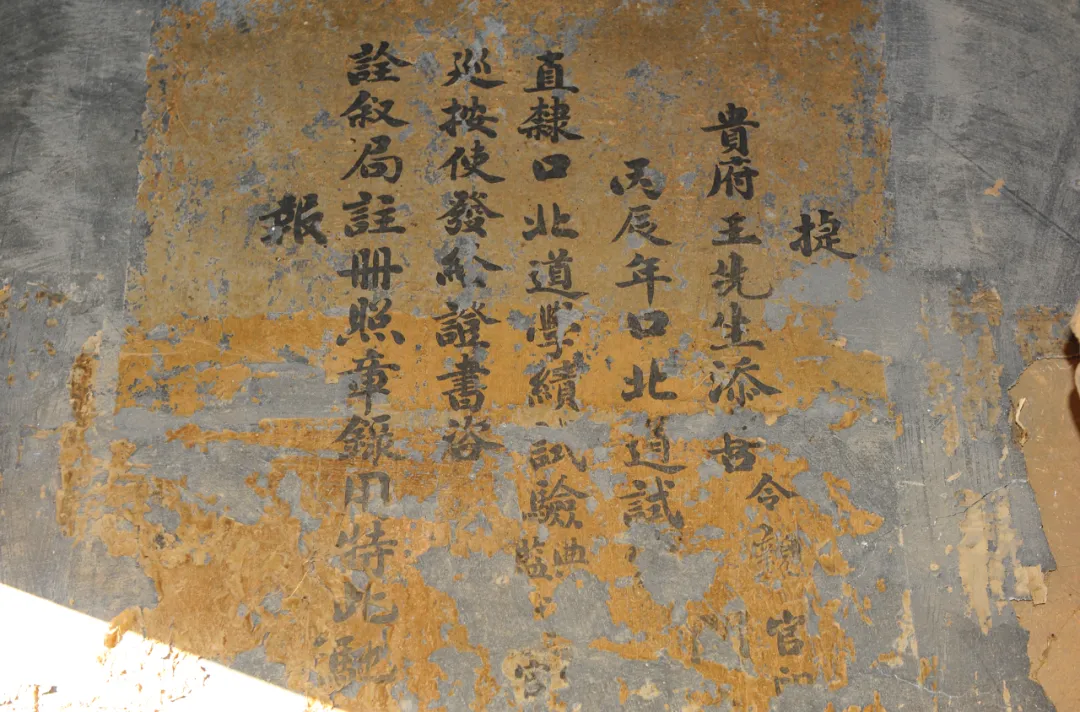 捷
貴府王先生添吉令親官
門
丙辰年口北道試
直隸口北道學績試驗典
監
官
巡按使發給證書咨
詮叙局註冊照章錄用特此馳
報